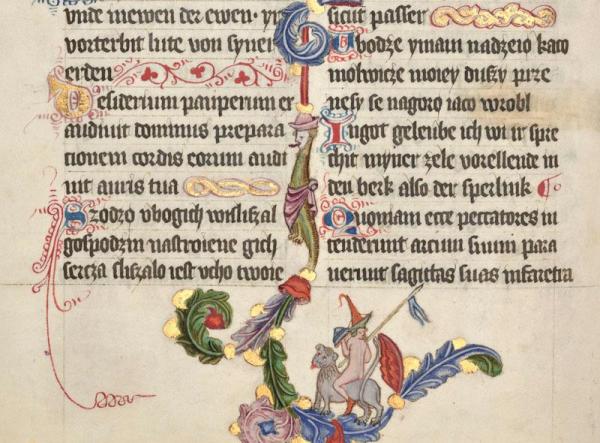 vnde mewen der ewen· yr
vorterbit lute von syner
erden
Desiderium pauperum ex
audiuit dominus prepara
cionem cordis eorum audi
uit auris tua
Szodzo vbogich wisliszal
gospodzin nastroiene gich
sercza sliszalo iest vcho twoie
sicut passer
bodze ymam nadzeio kaco
molwicze moiey duszy prze
nesy se nagoro iaco wrobl
Ingot geleube ich wi ir spre
chit myner zele vorellende in
den berk also der sperlink
Quoniam ecce peccatores in
tenderunt arcum suum para
uerunt sagittas suas infaretra